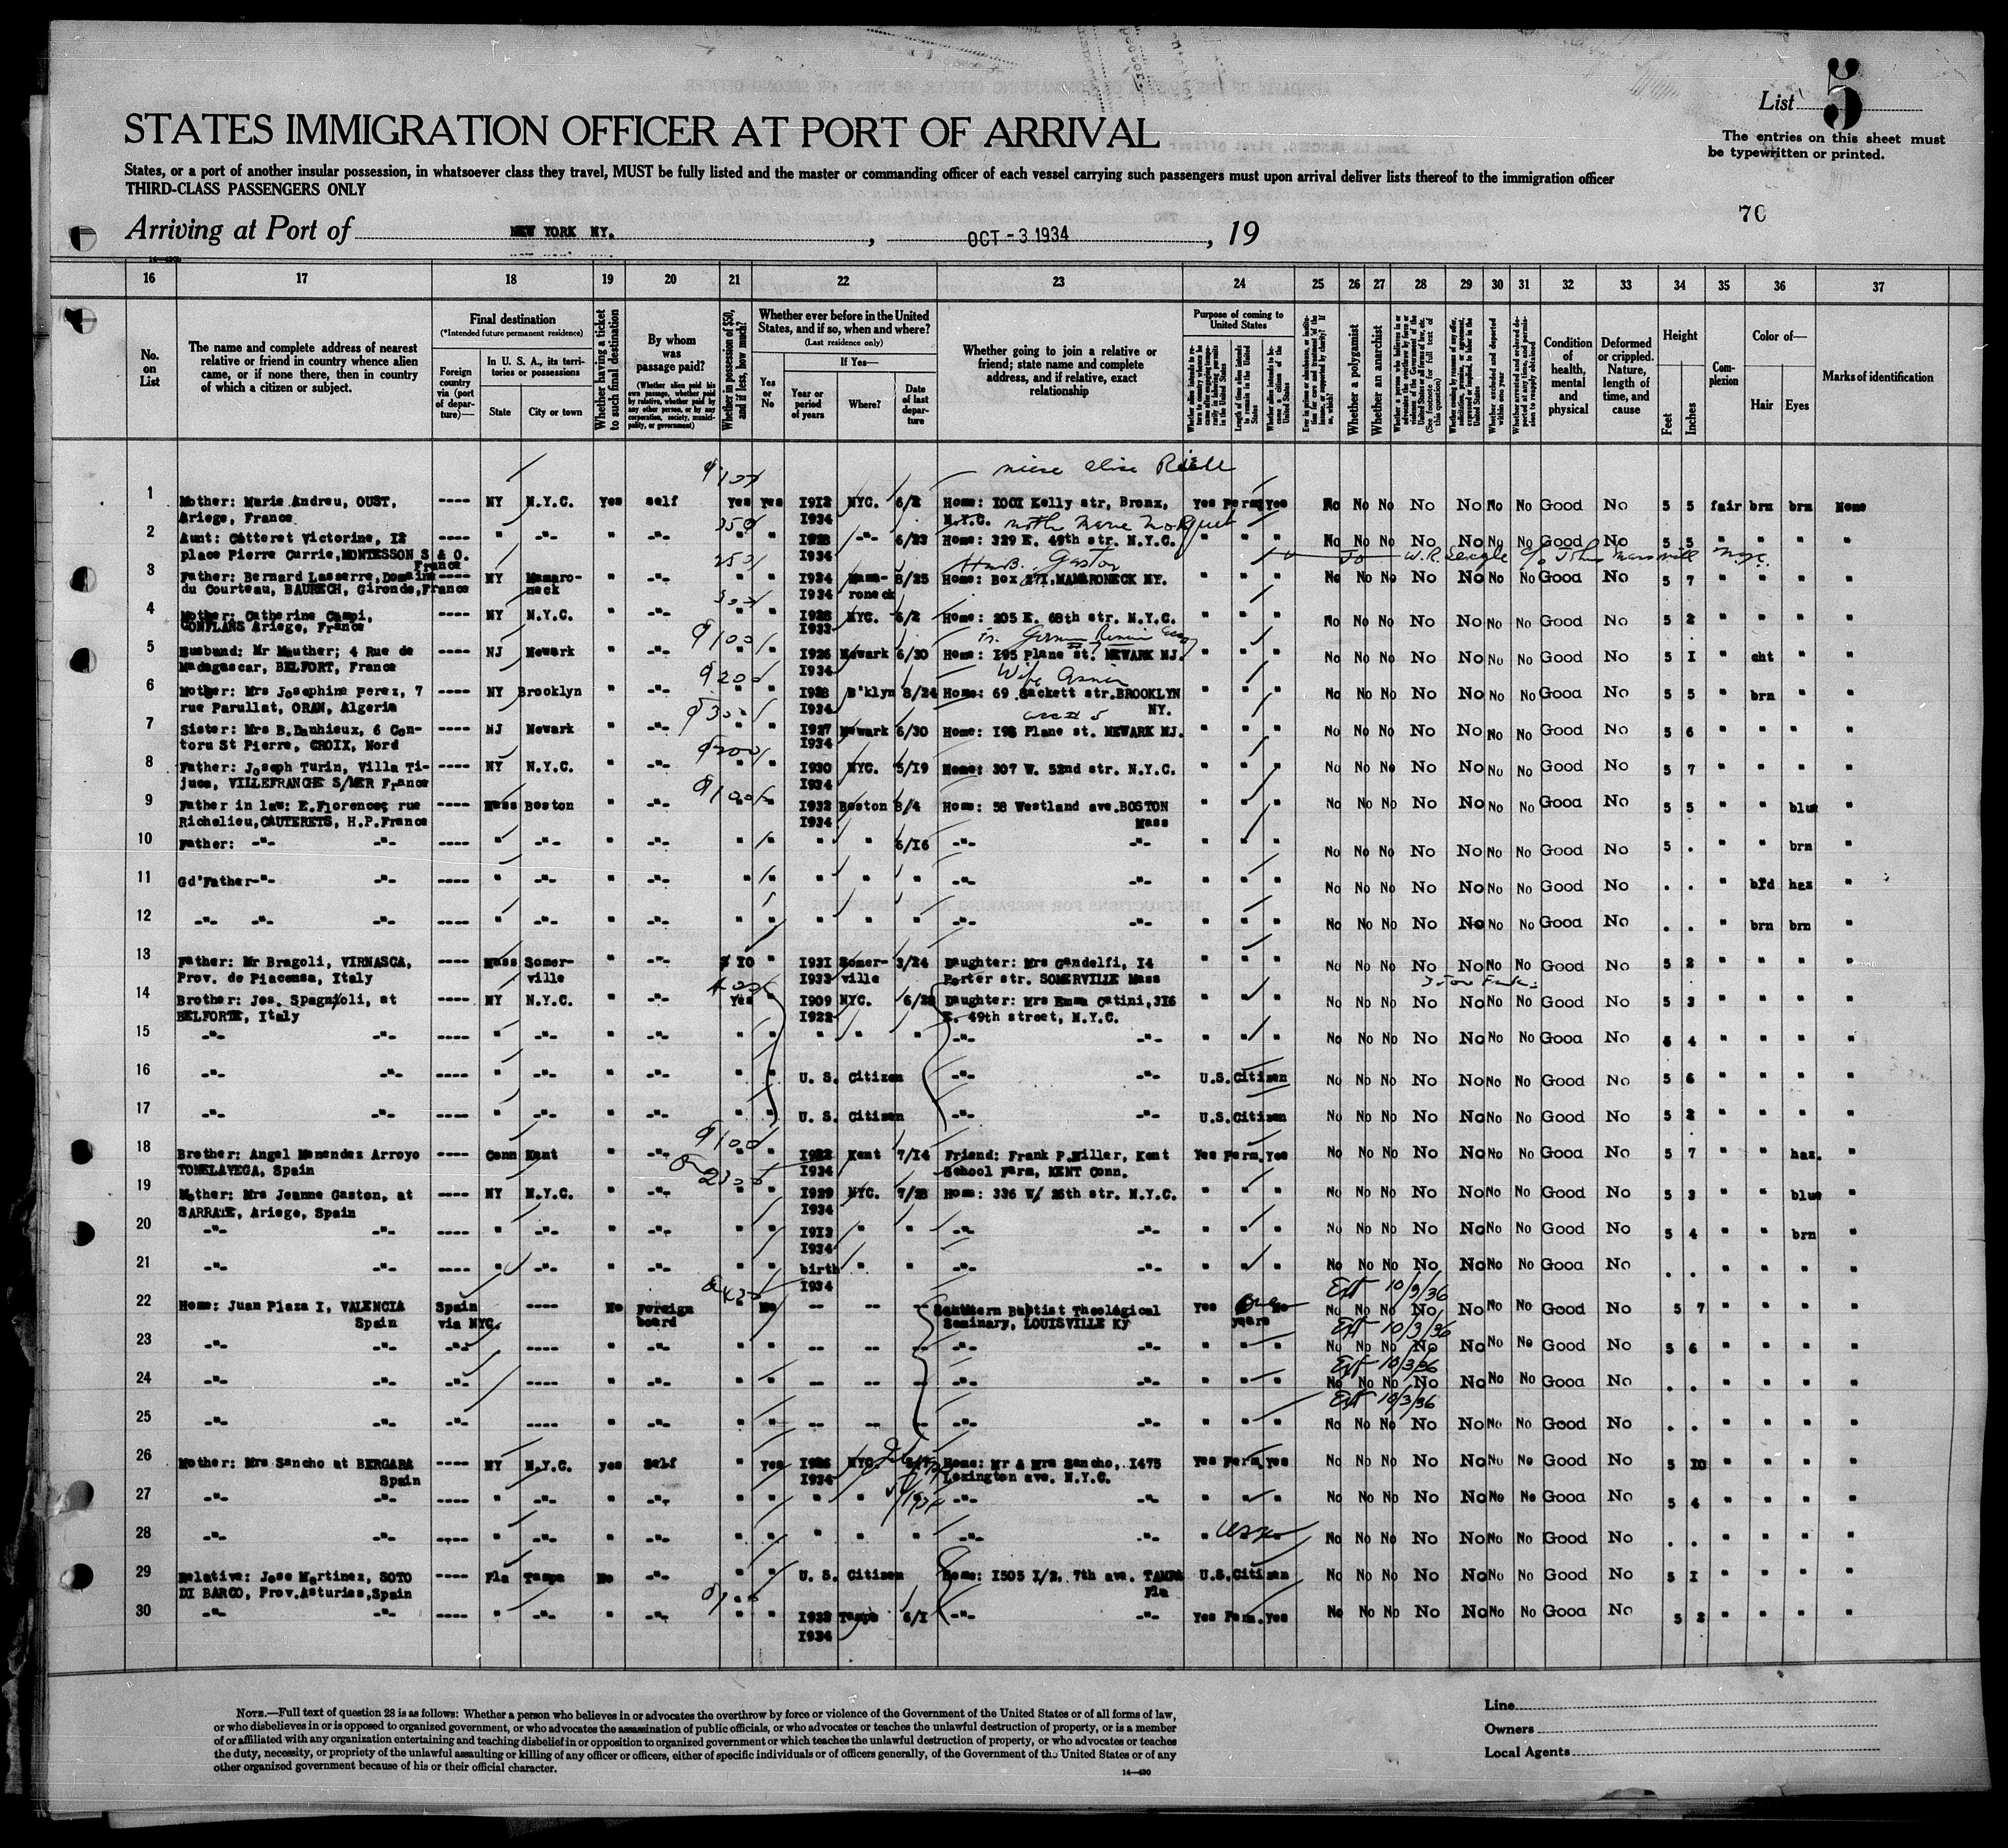 List 5
STATES IMMIGRATION OFFICER AT PORT OF ARRIVAL
The entries on this sheet must
be typewritten or printed.
States, or a port of another insular possession, in whatsoever class they travel, MUST be fully listed and the master or commanding officer of each vessel carrying such passengers must upon arrival deliver lists thereof to the immigration officer
THIRD-CLASS PASSENGERS ONLY
70
Arriving at Port of NEW YORK NY. , OCT -3 1934 , 19
16 17 18 19 20 21 22 23 24 25 26 27 28 29 30 31 32 33 34 35 36 37
No. on List
The name and complete address of nearest relative or friend in country whence alien came, or if none there, then in country of which a citizen or subject.
Final destination
(*Intended future permanent residence)
Foreign country via (port of departure)—
In U. S. A., its territories or possessions
State
City or town
Whether having a ticket to such final destination
By whom was passage paid?
(Whether alien paid his own passage, whether paid by relative, whether paid by any other person, or by any corporation, society, municipality, or government)
Whether in possession of $50, and if less, how much?
Whether ever before in the United States, and if so, when and where?
(Last residence only)
Yes or No
If Yes—
Year or period of years
Where?
Date of last departure
Whether going to join a relative or friend; state name and complete address, and if relative, exact relationship
Purpose of coming to United States
Length of time alien intends to remain in the United States
Whether alien intends to become a citizen of the United States
Whether a polygamist
Whether an anarchist
Condition of health, mental and physical
Deformed or crippled. Nature, length of time, and cause
Height
Feet
Inches
Complexion
Color of—
Hair
Eyes
Marks of identification
1 Mother: Marie Andreu, OUST, ---- NY N.Y.C. Yes self Yes yes 1912 NYC. 6/2 Home: 1001 Kelly str, Bronx, Yes Perm Yes No No No No No No No Good No 5 5 fair brn brn None
Ariege, France 1934 N.Y.C.
2 Aunt: Catteret Victorine, 12 " -"- -"- " -"- " " 1928 -"- 6/23 Home: 329 E. 49th str. N.Y.C. " " " No No No No No No No Good No 5 5 " " " "
place Pierre Currie, MONTESSON S & O. 1934
France
3 Father: Bernard Lasserre, Domaine ---- NY Mamaro- " -"- " " 1924 Mama- 8/25 Home: Box 271, MAMARONECK NY. " " " No No No No No No No Good No 5 7 " " " "
du Courteau, BAURECH, Gironde, France neck 1934 roneck
4 Mother: Catherine Campi, ---- NY N.Y.C. " -"- " " 1928 NYC. 6/2 Home: 205 E. 68th str. N.Y.C. " " " No No No No No No No Good No 5 2 " " " "
CONFLANS Ariege, France 1933
5 Husband: Mr Mauther; 4 Rue de ---- NJ Newark " -"- " " 1926 Newark 6/30 Home: 195 Plane st. NEWARK NJ. " " " No No No No No No No Good No 5 1 " cht " "
Madagascar, BELFORT, France 1934
6 Mother: Mrs Josephine Perez, 7 ---- NY Brooklyn " -"- " " 1928 B'klyn 8/24 Home: 69 Sackett str. BROOKLYN " " " No No No No No No No Good No 5 5 " brn " "
rue Parullat, ORAN, Algeria 1934 NY.
7 Sister: Mrs B. Danhieux, 6 Con- ---- NJ Newark " -"- " " 1927 Newark 6/30 Home: 195 Plane st. NEWARK NJ. " " " No No No No No No No Good No 5 6 " " " "
toru St Pierre, CROIX, Nord 1934
8 Father: Joseph Turin, Villa Ti- ---- NY N.Y.C. " -"- " " 1930 NYC. 5/19 Home: 307 W. 52nd str. N.Y.C. " " " No No No No No No No Good No 5 7 " " " "
juca, VILLEFRANCHE S/MER France 1934
9 Father in law: E. Florences rue ---- Mass Boston " -"- " " 1932 Boston 8/4 Home: 58 Westland ave. BOSTON " " " No No No No No No No Good No 5 5 " " blue "
Richelieu, CAUTERETS, H.P. France 1934 Mass
10 Father: -"- -"- ---- " -"- " -"- " " " " 6/16 -"- -"- " " " No No No No No No No Good No 5 . " " brn "
11 Gd'Father -"- -"- ---- " -"- " -"- " " " " " -"- -"- " " " No No No No No No No Good No . . " bld haz "
12 -"- -"- -"- ---- " -"- " -"- " " " " " -"- -"- " " " No No No No No No No Good No . . " brn brn "
13 Father: Mr Bragoli, VIRNASCA, ---- Mass Somer- " -"- $ 10 " 1931 Somer- 3/24 Daughter: Mrs Gandelfi, 14 " " " No No No No No No No Good No 5 2 " " " "
Prov. de Piacensa, Italy ville 1933 ville Porter str. SOMERVILLE Mass
14 Brother: Jos. Spagnioli, at ---- NY N.Y.C. " -"- Yes " 1909 NYC. 6/28 Daughter: Mrs Emma Catini, 316 " " " No No No No No No No Good No 5 3 " " " "
BELFORTE, Italy 1922 E. 49th street, N.Y.C.
15 -"- -"- ---- " -"- " -"- " " " " " -"- -"- " " " No No No No No No No Good No 5 4 " " " "
16 -"- -"- ---- " -"- " -"- " " U. S. Citizen -"- -"- U.S.Citizen No No No No No No No Good No 5 6 " " " "
17 -"- -"- ---- " -"- " -"- " " U. S. Citizen -"- -"- U.S.Citizen No No No No No No No Good No 5 2 " " " "
18 Brother: Angel Menendez Arroyo ---- Conn Kent " -"- " " 1922 Kent 7/14 Friend: Frank P. Miller, Kent Yes Perm. Yes No No No No No No No Good No 5 7 " " haz. "
TONELAVEGA, Spain 1934 School Farm, KENT Conn.
19 Mother: Mrs Jeanne Gaston, at ---- NY N.Y.C. " -"- " " 1929 NYC. 7/28 Home: 336 W/ 26th str. N.Y.C. " " " No No No No No No No Good No 5 3 " " blue "
SARRATE, Ariege, Spain 1934
20 -"- -"- ---- " -"- " -"- " " 1913 " " -"- -"- " " " No No No No No No No Good No 5 4 " " brn "
1934
21 -"- -"- ---- " -"- " -"- " " birth " " -"- -"- " " " No No No No No No No Good No . . " " " "
1934
Ext 10/9/36
22 Home: Juan Plaza I, VALENCIA Spain ---- No Foreign " No -- -- -- Southern Baptist Theological Yes No No No No No No No No Good No 5 7 " " " "
Spain via NYC. board Seminary, LOUISVILLE Ky years
Ext 10/3/36
23 -"- -"- -"- ---- " -"- " " -- -- -- -"- -"- " " " No No No No No No No Good No 5 6 " " " "
Ext 10/3/36
24 -"- -"- -"- ---- " -"- " " -- -- -- -"- -"- " " " No No No No No No No Good No . . " " " "
Ext 10/3/36
25 -"- -"- -"- ---- " -"- " " -- -- -- -"- -"- " " " No No No No No No No Good No . . " " " "
26 Mother: Mrs Sancho at BERGARA ---- NY N.Y.C. yes Self " Yes 1926 NYC Home: Mr & Mrs Sancho, 1475 Yes Perm. yes No No No No No No No Good No 5 10 " " " "
Spain 1934 Lexington ave. N.Y.C.
27 -"- -"- ---- " -"- " -"- " " " " -"- -"- " " " No No No No No No No Good No 5 4 " " " "
28 -"- -"- ---- " -"- " -"- " " " " " -"- -"- " No No No No No No No Good No . . " " " "
29 Relative: Jose Martinez, SOTO ---- Fla Tampa No -"- " " U. S. Citizen Home: 1505 1/2, 7th ave. TAMPA U.S.Citizen No No No No No No No Good No 5 1 " " " "
DI BARCO, Prov. Asturias, Spain Fla
30 -"- -"- ---- " -"- " -"- " " 1933 Tampa 6/1 -"- -"- Yes Perm. Yes No No No No No No No Good No 5 2 " " " "
1934
NOTE.—Full text of question 28 is as follows: Whether a person who believes in or advocates the overthrow by force or violence of the Government of the United States or of all forms of law,
or who disbelieves in or is opposed to organized government, or who advocates the assassination of public officials, or who advocates or teaches the unlawful destruction of property, or is a member
of or affiliated with any organization entertaining and teaching disbelief in or opposition to organized government or which teaches the unlawful destruction of property, or who advocates or teaches
the duty, necessity, or propriety of the unlawful assaulting or killing of any officer or officers, either of specific individuals or of officers generally, of the Government of the United States or of any
other organized government because of his or their official character.
14—430
Line
Owners
Local Agents